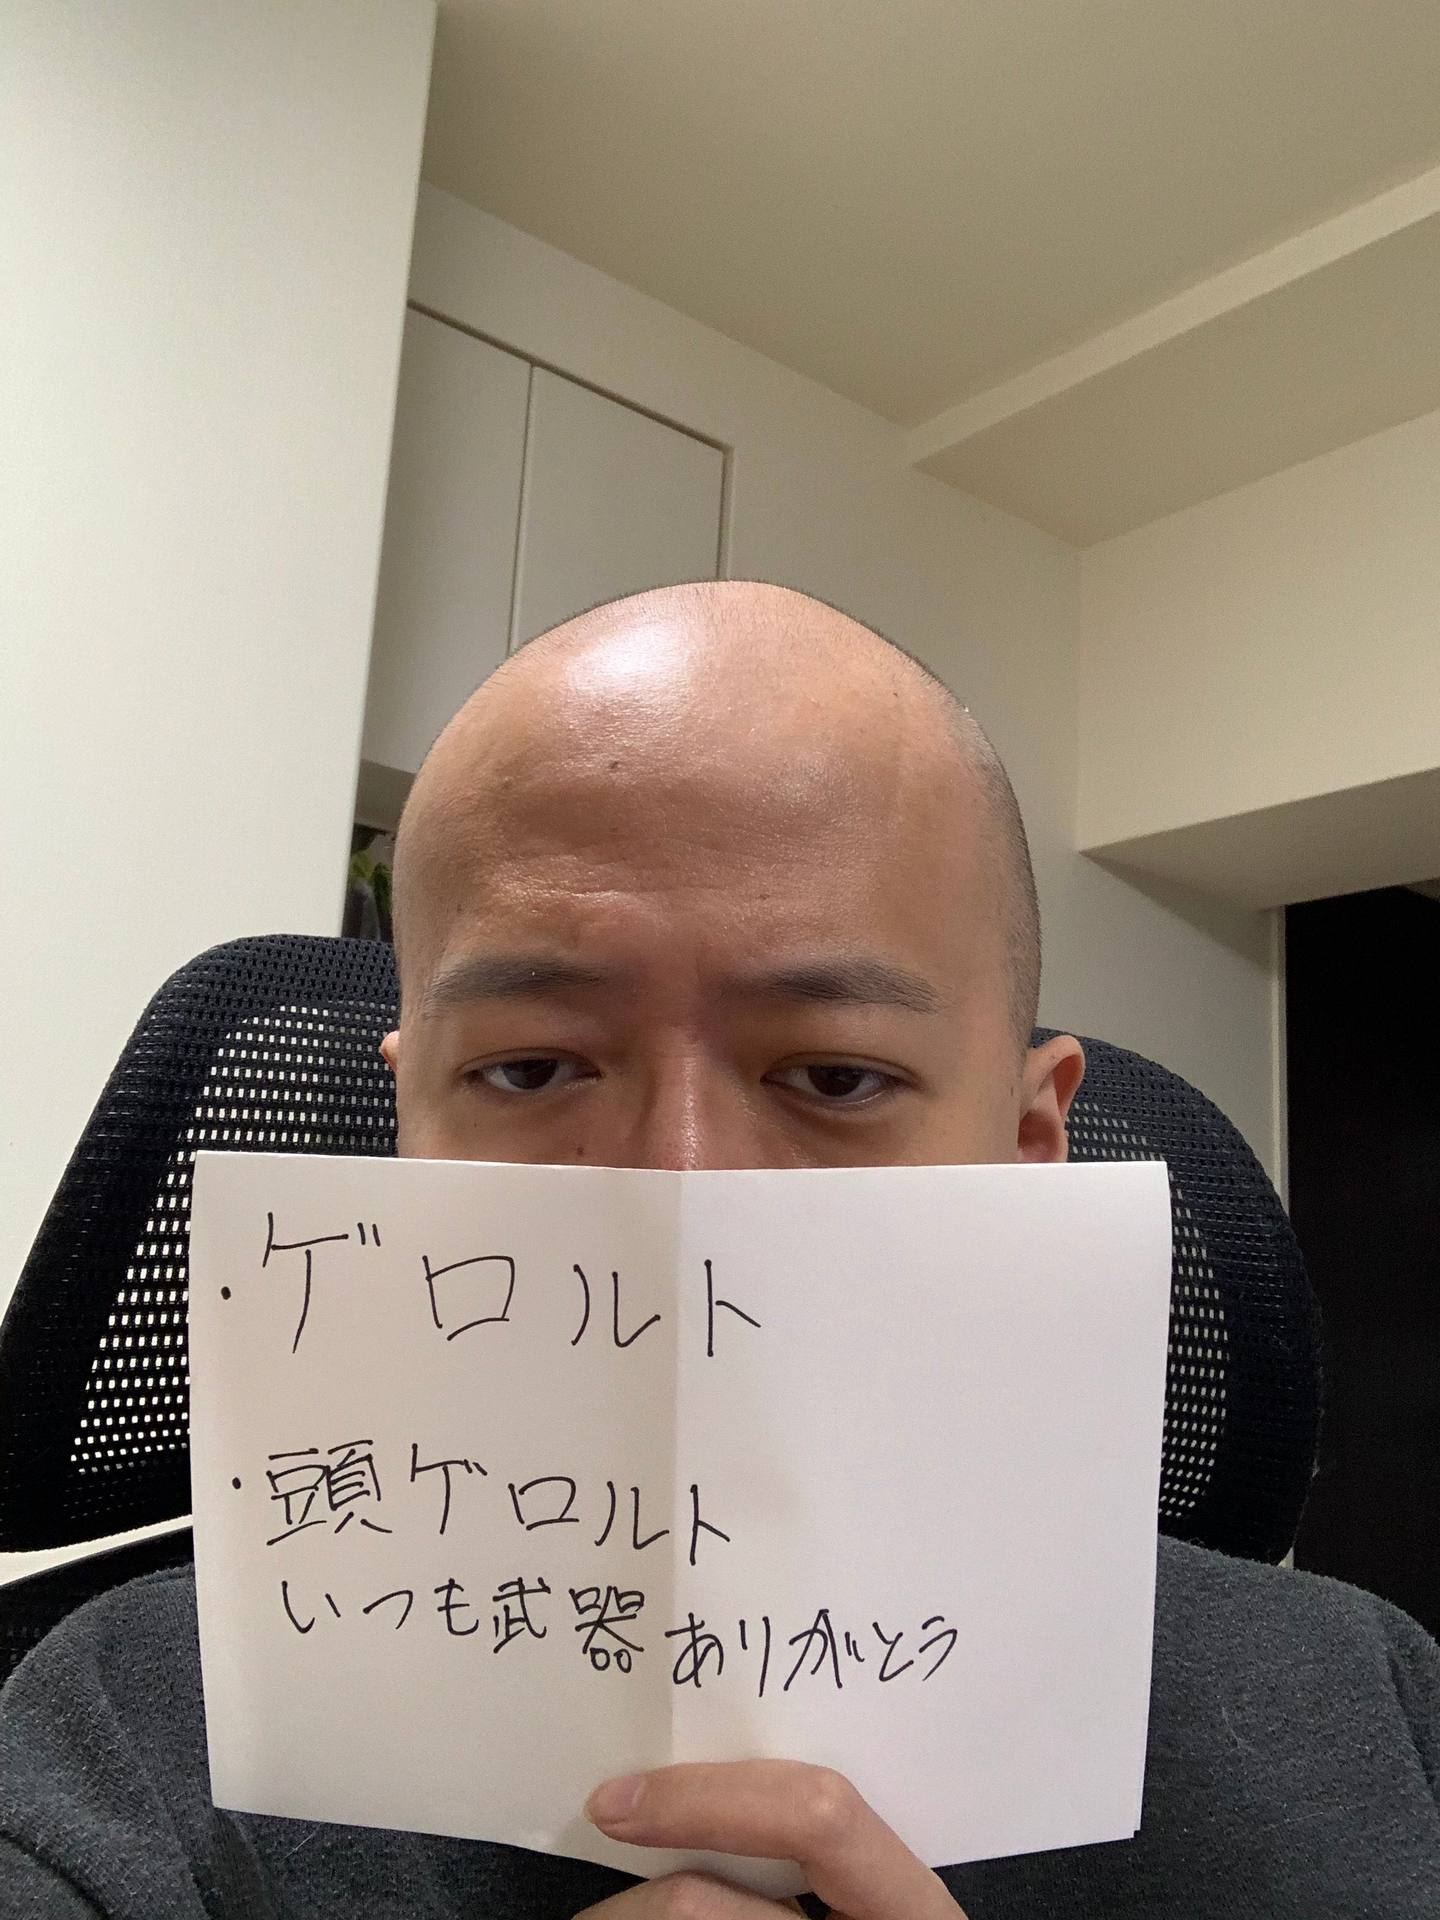 ・ゲロルト
・頭ゲロルト
いつも武器ありがとう